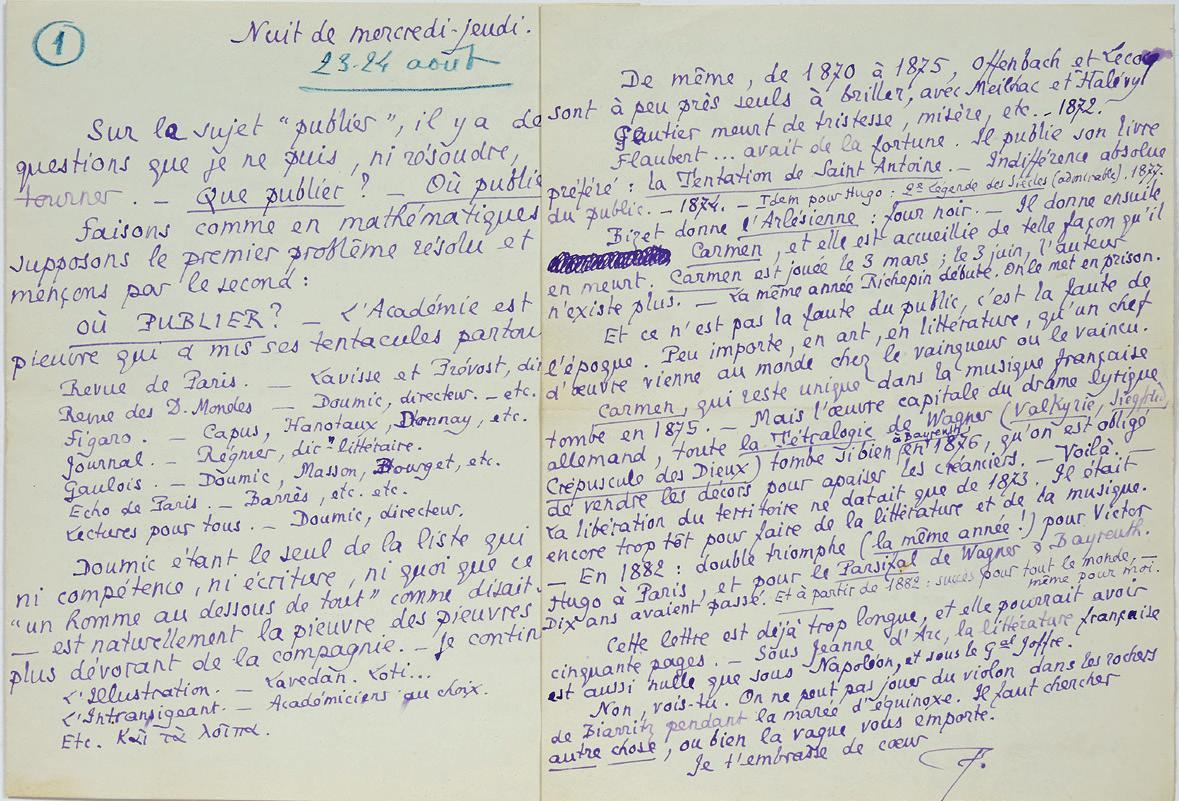 1
Nuit de mercredi-jeudi.
23-24 août
Sur le sujet "publier", il y a de
questions que je ne puis, ni résoudre,
tourner. — Que publier ? — Où publie
Faisons comme en mathématiques
supposons le premier problème résolu et
mençons par le second :
OÙ PUBLIER ? — L'Académie est
pieuvre qui a mis ses tentacules partou
Revue de Paris. — Lavisse et Prévost, dir
Revue des D. Mondes — Doumic, directeur. — etc.
Figaro. — Capus, Hanotaux, Donnay, etc.
Journal. — Régnier, dir.ʳ littéraire.
Gaulois. — Doumic, Masson, Bourget, etc.
Echo de Paris. — Barrès, etc. etc.
Lectures pour tous. — Doumic, directeur.
Doumic étant le seul de la liste qui
ni compétence, ni écriture, ni quoi que ce
"un homme au dessous de tout" comme disait
— est naturellement la pieuvre des pieuvres
plus dévorant de la compagnie. — Je contin
L'Illustration. — Lavedan. Loti...
L'Intransigeant. — Académiciens au choix.
Etc. Καὶ τὰ λοῖπα.
De même, de 1870 à 1875, Offenbach et Lecoq
sont à peu près seuls à briller, avec Meilhac et Halévy
Gautier meurt de tristesse, misère, etc. — 1872.
Flaubert... avait de la fortune. Il publie son livre
préféré : la Tentation de Saint Antoine. — Indifférence absolue
du public. — 1874. — Idem pour Hugo : 2ᵉ Légende des Siècles (admirable), 1877.
Bizet donne l'Arlésienne : four noir. — Il donne ensuite
Carmen, et elle est accueillie de telle façon qu'il
en meurt. Carmen est jouée le 3 mars ; le 3 juin, l'auteur
n'existe plus. — La même année Richepin débute. On le met en prison.
Et ce n'est pas la faute du public, c'est la faute de
l'époque. Peu importe, en art, en littérature, qu'un chef
d'œuvre vienne au monde chez le vainqueur ou le vaincu.
Carmen, qui reste unique dans la musique française
tombe en 1875. — Mais l'œuvre capitale du drame lyrique
allemand, toute la Tétralogie de Wagner (Valkyrie, Siegfried,
Crépuscule des Dieux) tombe si bien à Bayreuth en 1876, qu'on est obligé
de vendre les décors pour apaiser les créanciers. — Voilà. —
La libération du territoire ne datait que de 1873. Il était
encore trop tôt pour faire de la littérature et de la musique.
— En 1882 : double triomphe (la même année !) pour Victor
Hugo à Paris, et pour le Parsifal de Wagner à Bayreuth.
Dix ans avaient passé. Et à partir de 1882 : succès pour tout le monde. —
même pour moi.
Cette lettre est déjà trop longue, et elle pourrait avoir
cinquante pages. — Sous Jeanne d'Arc, la littérature française
est aussi nulle que sous Napoléon, et sous le Gᵃˡ Joffre.
Non, vois-tu. On ne peut pas jouer du violon dans les rochers
de Biarritz pendant la marée d'équinoxe. Il faut chercher
autre chose, ou bien la vague vous emporte.
Je t'embrasse de cœur